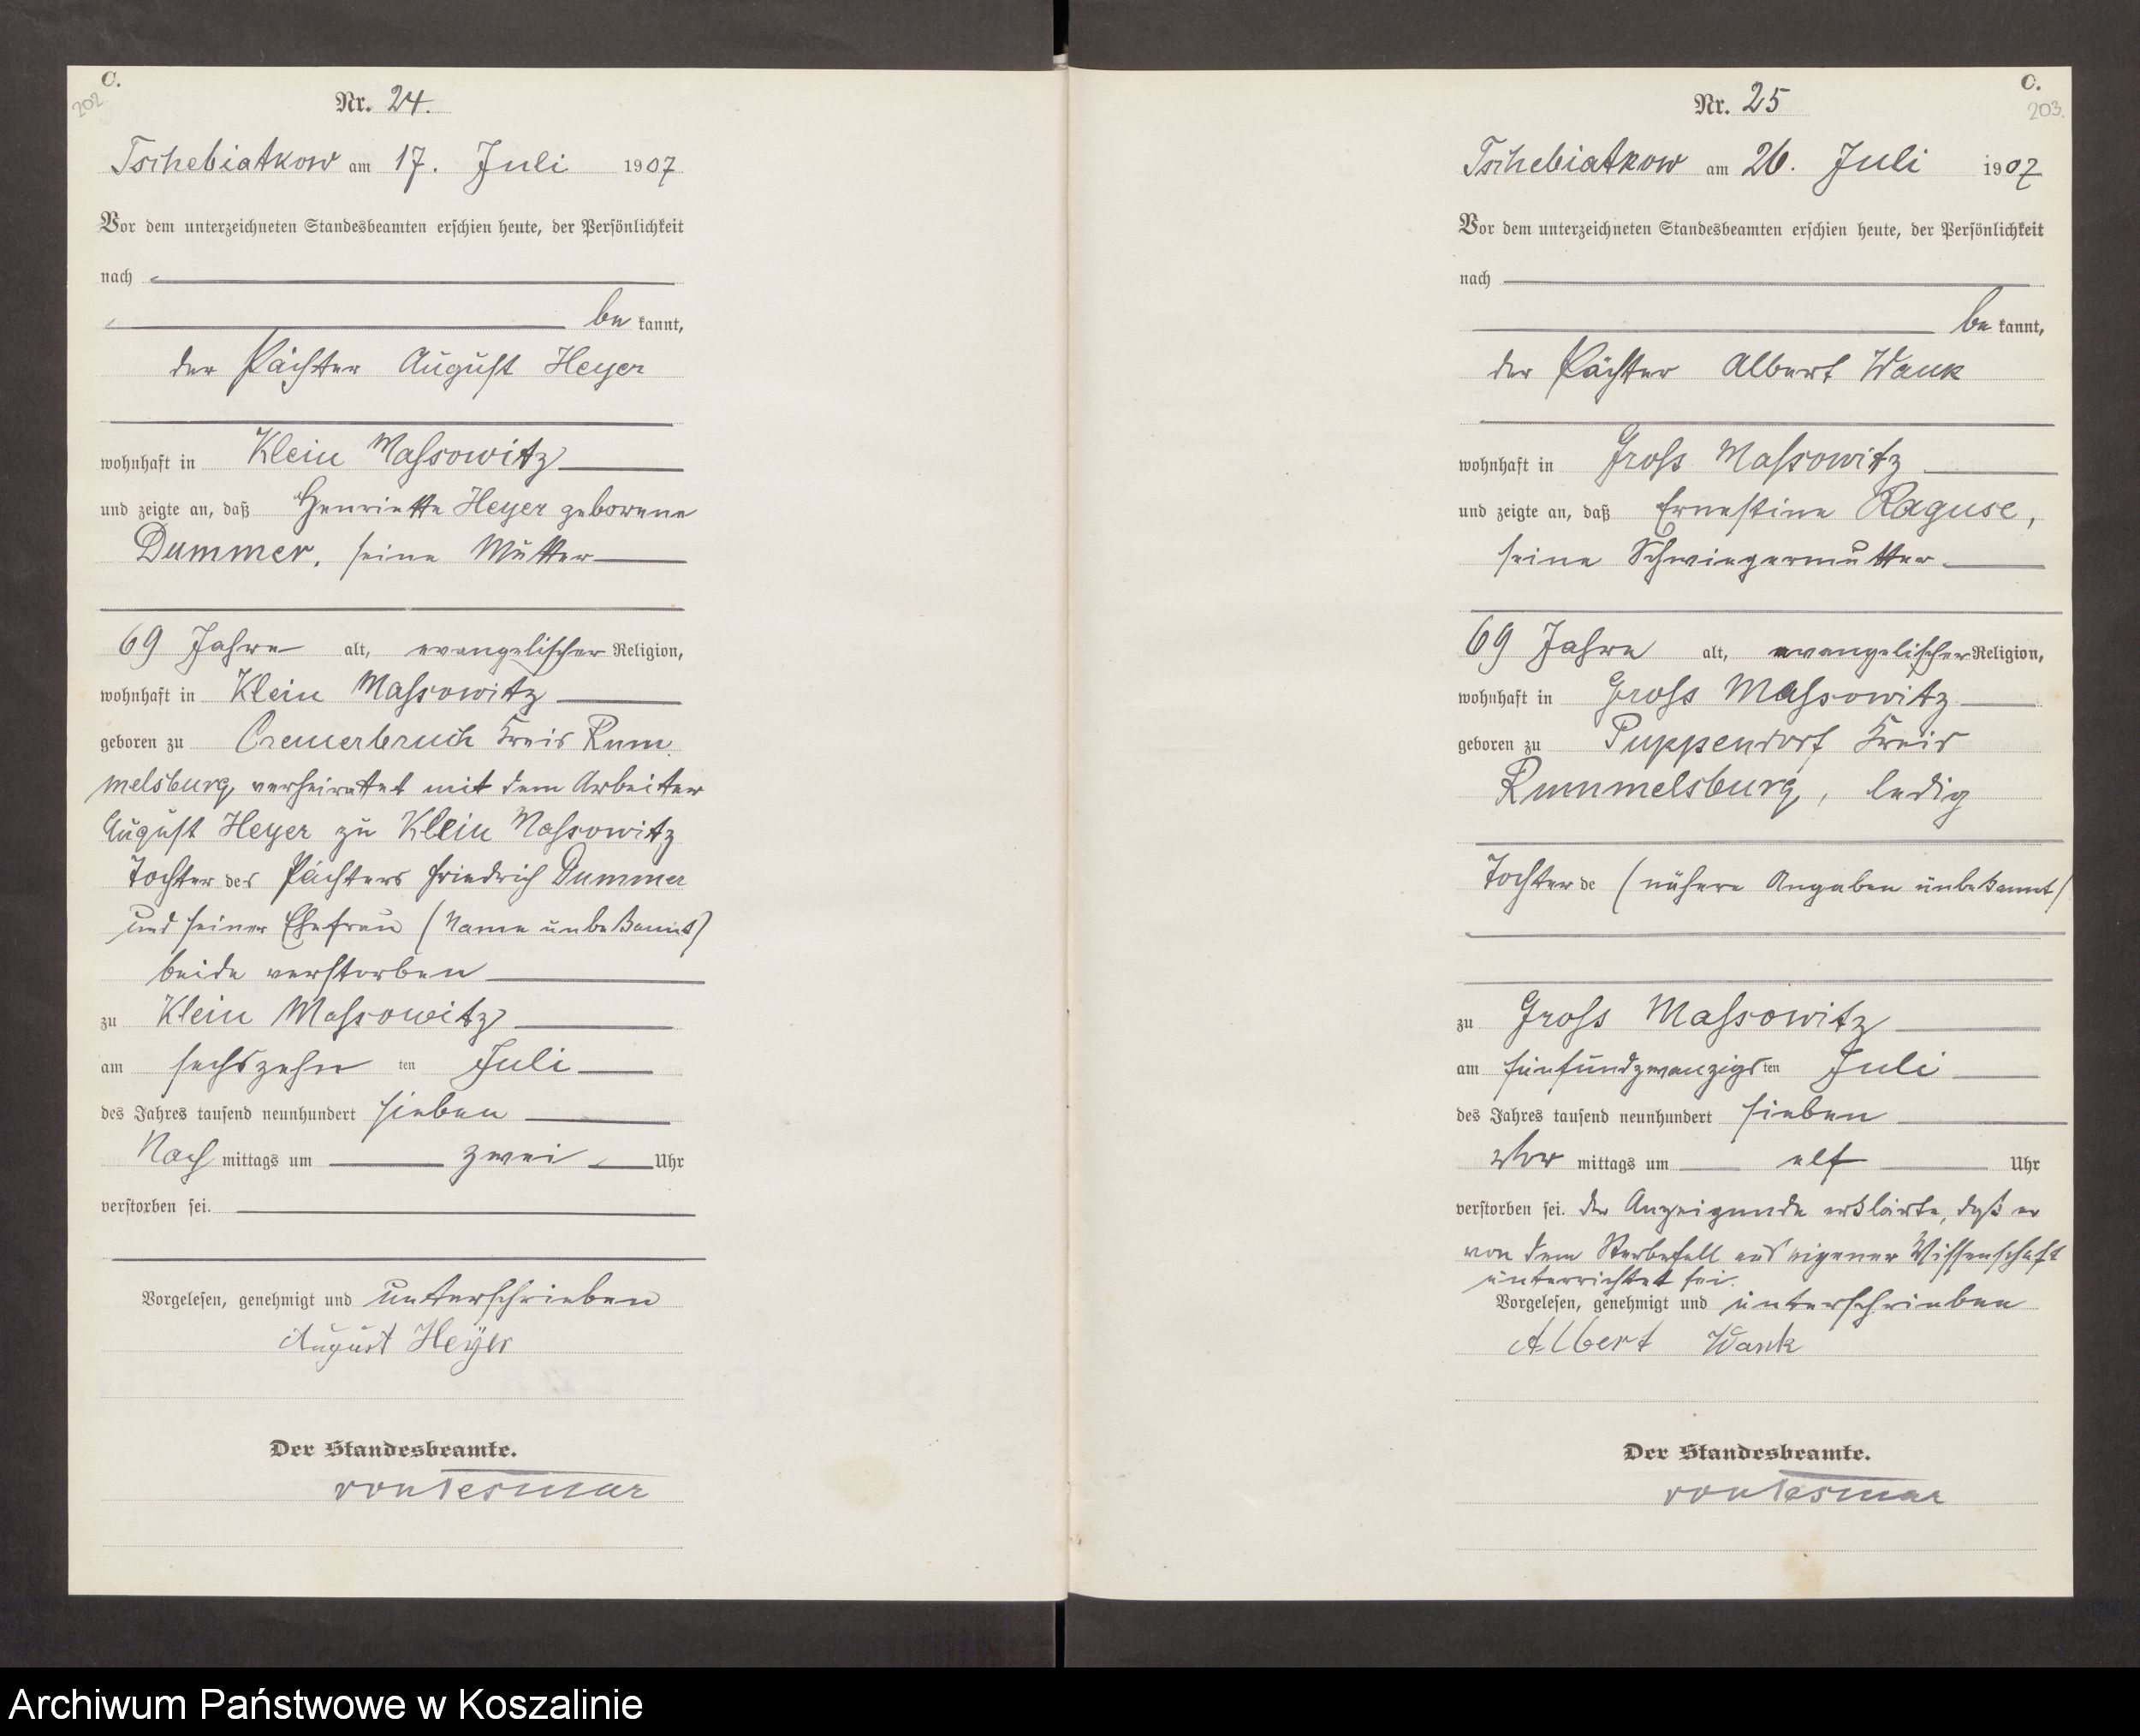 C.
202
Nr. 24.
Tschebiatkow am 17. Juli 1907
Vor dem unterzeichneten Standesbeamten erschien heute, der Persönlichkeit
nach
be kannt,
der Pächter August Heyer
wohnhaft in Klein Massowitz
und zeigte an, daß Henriette Heyer geborene
Dummer, seine Mutter
69 Jahre alt, evangelischer Religion,
wohnhaft in Klein Massowitz
geboren zu Cremerbruch Kreis Rum
melsburg, verheiratet mit dem Arbeiter
August Heyer zu Klein Massowitz
Tochter des Pächters Friedrich Dummer
und seiner Ehefrau (Name unbekannt)
beide verstorben
zu Klein Massowitz
am sechszehn ten Juli
des Jahres tausend neunhundert sieben
Nach mittags um zwei Uhr
verstorben sei.
Vorgelesen, genehmigt und unterschrieben
August Heyer
Der Standesbeamte.
von Tesmar
C.
203.
Nr. 25
Tschebiatkow am 26. Juli 1907
Vor dem unterzeichneten Standesbeamten erschien heute, der Persönlichkeit
nach
be kannt,
der Pächter Albert Wank
wohnhaft in Gross Massowitz
und zeigte an, daß Ernestine Raguse,
seine Schwiegermutter
69 Jahre alt, evangelischer Religion,
wohnhaft in Gross Massowitz
geboren zu Puppendorf Kreis
Rummelsburg, ledig
Tochter de (nähere Angaben unbekannt)
zu Gross Massowitz
am fünfundzwanzigs ten Juli
des Jahres tausend neunhundert sieben
Vor mittags um elf Uhr
verstorben sei. Der Anzeigende erklärte, daß er
von dem Sterbefall aus eigener Wissenschaft
unterrichtet sei.
Vorgelesen, genehmigt und unterschrieben
Albert Wank
Der Standesbeamte.
von Tesmar
Archiwum Państwowe w Koszalinie